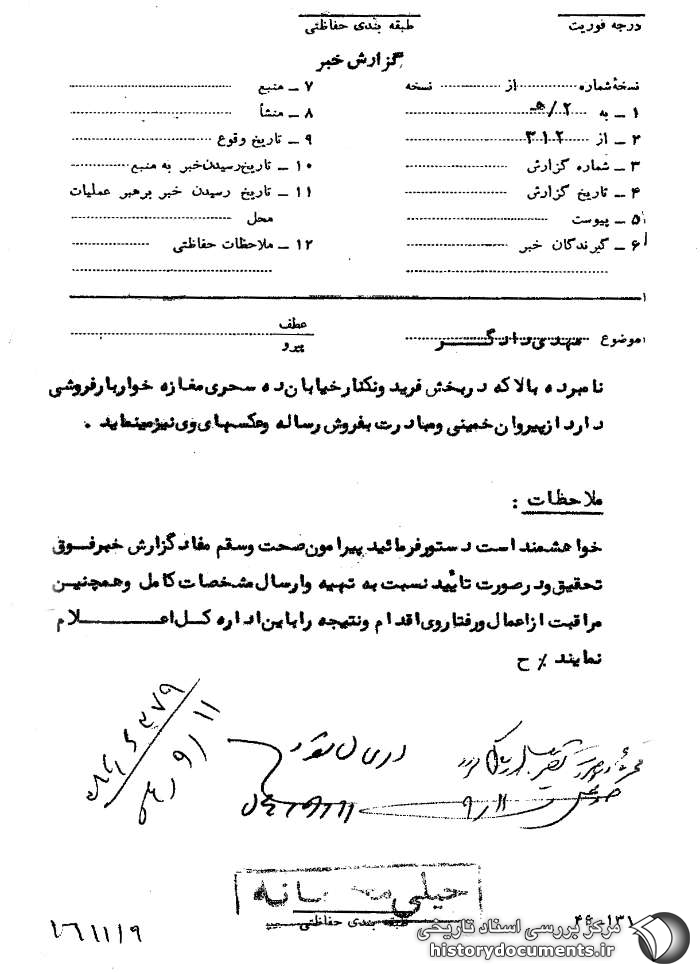 درجه فوریت
طبقه بندی حفاظتی
گزارش خبر
نسخهٔ شماره ........ از ........ نسخه
۱ ــ به ۲/ﻫ
۲ ــ از ۳۱۲
۳ ــ شماره گزارش
۴ ــ تاریخ گزارش
۵ ــ پیوست
۶ ــ گیرندگان خبر
۷ ــ منبع
۸ ــ منشأ
۹ ــ تاریخ وقوع
۱۰ ــ تاریخ رسیدن خبر به منبع
۱۱ ــ تاریخ رسیدن خبر برهبر عملیات
محل
۱۲ ــ ملاحظات حفاظتی
موضوع مهدی دادگـــر
عطف
پیرو
نامبرده بالا که در بخش فرید ونکنار خیابان ده سحری مغازه خواربارفروشی
دارد از پیروان خمینی و مبادرت بفروش رساله و عکسهای وی نیز مینماید .
ملاحظات :
خواهشمند است دستور فرمائید پیرامون صحت و سقم مفاد گزارش خبر فــوق
تحقیق و در صورت تأیید نسبت به تهیه و ارسال مشخصات کامل و همچنیــن
مراقبت از اعمال و رفتار وی اقدام و نتیجه را باین اداره کــل اعـــــــلام
نمایند ٪ ح
ارسال شود
۵۴/۹/۱۱
۹/۱۱
۵۴/۹/۱۱
خیلی محرمانه
طبقه بندی حفاظتی
۱۶۱۱/۹
۴۶-۱۳۱
مرکز بررسی اسناد تاریخی
historydocuments.ir